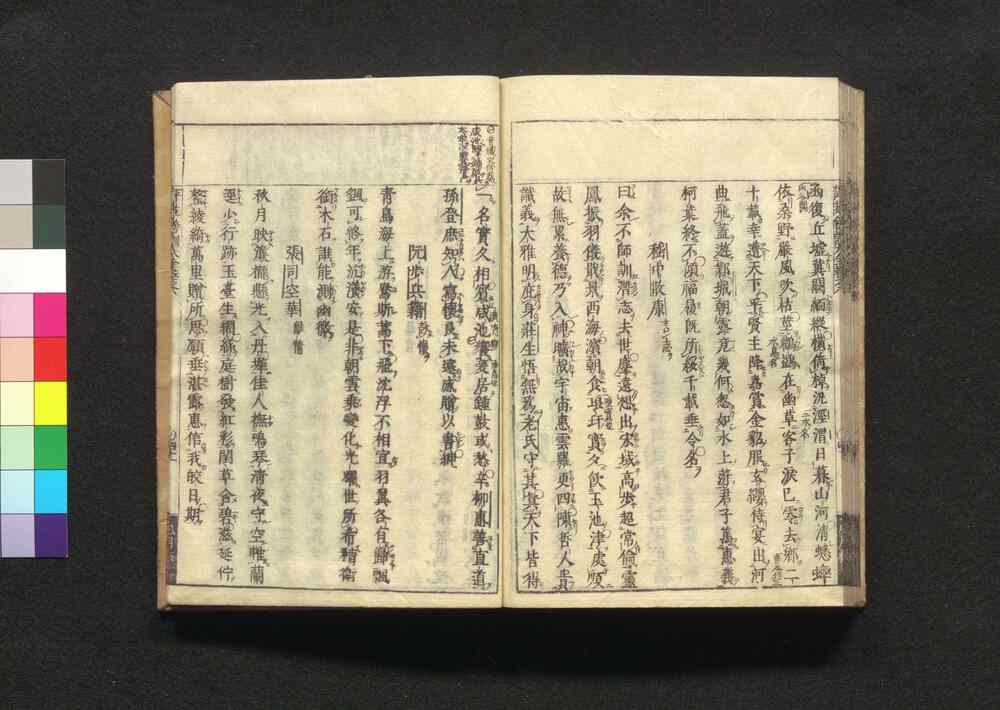 函復丘墟冀闕緬縱橫倚棹汎涇渭日暮山河清蟋蟀
依桑野嚴風吹枯莖鶺鴒在幽草客子淚已零去鄉二
十載幸遭天下平賢主降嘉賞金貂服玄纓侍宴出河
曲飛蓋遊鄴城朝露竟幾何忽如水上萍君子篤惠義
柯葉終不傾福履既所綏千載垂令名
嵇中散康
曰余不師訓潛志去世塵遠想出宏域高步超常倫靈
鳳振羽儀戢景西海濱朝食琅玕實夕飲玉池津處順
故無累養德乃入神曠哉宇宙惠雲羅更四陳哲人貴
識義大雅明庇身莊生悟無為老氏守其真天下皆得
一名實久相賓咸池饗爰居鍾鼓或愁辛柳惠善直道
孫登庶知人寫懷良未遠感贈以書紳
阮步兵籍 詠懷
青鳥海上遊鸒斯蒿下飛沈浮不相宜羽翼各有歸飄
颻可終年沆瀁安是非朝雲乘變化光耀世所希精衛
銜木石誰能測幽微
張司空華 離情
秋月映簾櫳懸光入丹墀佳人撫鳴琴清夜守空帷蘭
逕少行跡玉臺生網絲庭樹發紅彩閨草含碧滋延佇
整綾綺萬里贈所思願垂湛露惠信我皎日期